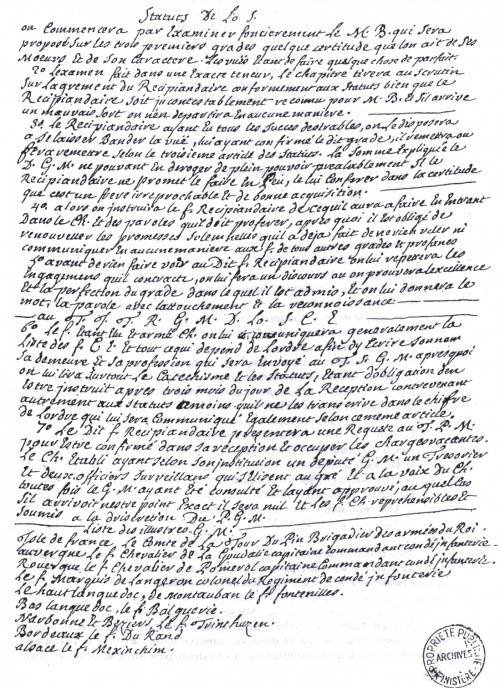 Statuts De Lo S.
on Commencera par Examiner foncierement Le M. B. qui sera
proposé Sur les trois premiers grades quelque certitude que lon ait de Ses
Moeurs Et de Son Caractere de faire quelque chose de parfait.
2o. Lexamen fait dans une Exacte teneur, Le chapitre tirera au Scrutin
Sur Lagrement du Recipiandaire conformement aux Statuts bien que le
Recipiandaire Soit incontestablement reconnu pour M. B. Et Sil arrive
un mauvais Sort on nen departira En aucune maniere.
3o. Le Recipiandaire ayant Eu tous les Succes desirables, on Le disposera
a Se laisser Bander la vuë, lui ayant confirmé le dit grade, il remettra ou
fera remettre Selon le troisieme article des Statuts. La Somme Expliquée le
D. G. M. ne pouvant En deroger de plein pouvoir prealablement Si le
Recipiandaire ne promet le faire En peu, le lui Conferer dans la certitude
que cest un frere irreprochable et de bonne acquisition.
4o. alors on instruira le f. Recipiandaire de Cequil aura a faire En Entrant
Dans le Ch. Et des paroles quil doit proferer, apres quoi il Est obligé de
renouveller les promesses Solemnelles quil a deja fait de ne rien reveler ni
communiquer En aucune maniere aux f. de tous autres grades et profanes
5o. avant de rien faire voir au Dit f. Recipiandaire on lui repettera les
Engagements quil contracte, on lui fera un discours ou on prouvera lexcellence
Et la perfection du grade dans le quel il Est admis, Et on lui donnera le
mot, la parole avec lattouchement Et la reconnaissance
au T. T. T. R. G. M. D. Lo. S. C. E
6o. Le f. Etant lié Et armé Ch. on lui communiquera generalement la
Liste des f. C. E. Et tout cequi depend de Lordre afin dy Ecrire Son nom
Sa demeure Et Sa profession qui Sera Envoyé au T. S. G. M. apres quoi
on lui lira Surtout le Catechisme Et les Statuts, Etant dobligation den
Estre instruit apres trois mois du jour de La Reception contrevenant
autrement aux Statuts amoins quil ne les transcrive dans le chiffre
de Lordre qui lui Sera Communiqué Egalement Selon ce meme article.
7o. Le Dit f. Recipiandaire presentera une Requete au T. P. M.
pour Estre confirmé dans Sa reception Et occuper les Charges vacantes.
Le Ch. Etabli ayant Selon Son institution un deputé G. M. un Tresorier
Et deux officiers Surveillans qui Selisent au gré Et a la voix du Ch.
toutes fois le G. M. ayant Eté consulté Et layant approuvé, au quel cas
Sil arrivoit nestre point Exact il sera nul Et les f. Ch. reprehensibles Et
Soumis a la discretion Du P. G. M.
Liste des illustres G. M.
Isle de france, Le Comte de La Tour Du Pin Brigadier des armées du Roi.
auvergne Le f. Chevalier de La capitaine commandant condé infanterie.
Rouergue le f. Chevalier de Pomerol capitaine Commandant condé infanterie.
Le f. Marquis de Langeron colonel du Regiment de condé infanterie
Le haut languedoc, de Montauban le f. fontenilles.
Bas languedoc, le f. Balquerie.
Narbonne et Beziers, Le f.
Bordeaux le f. Du Rand
alsace le f. Mexinchim.
PROPRIETE PUBLIQUE
ARCHIVES
MINISTÈRE